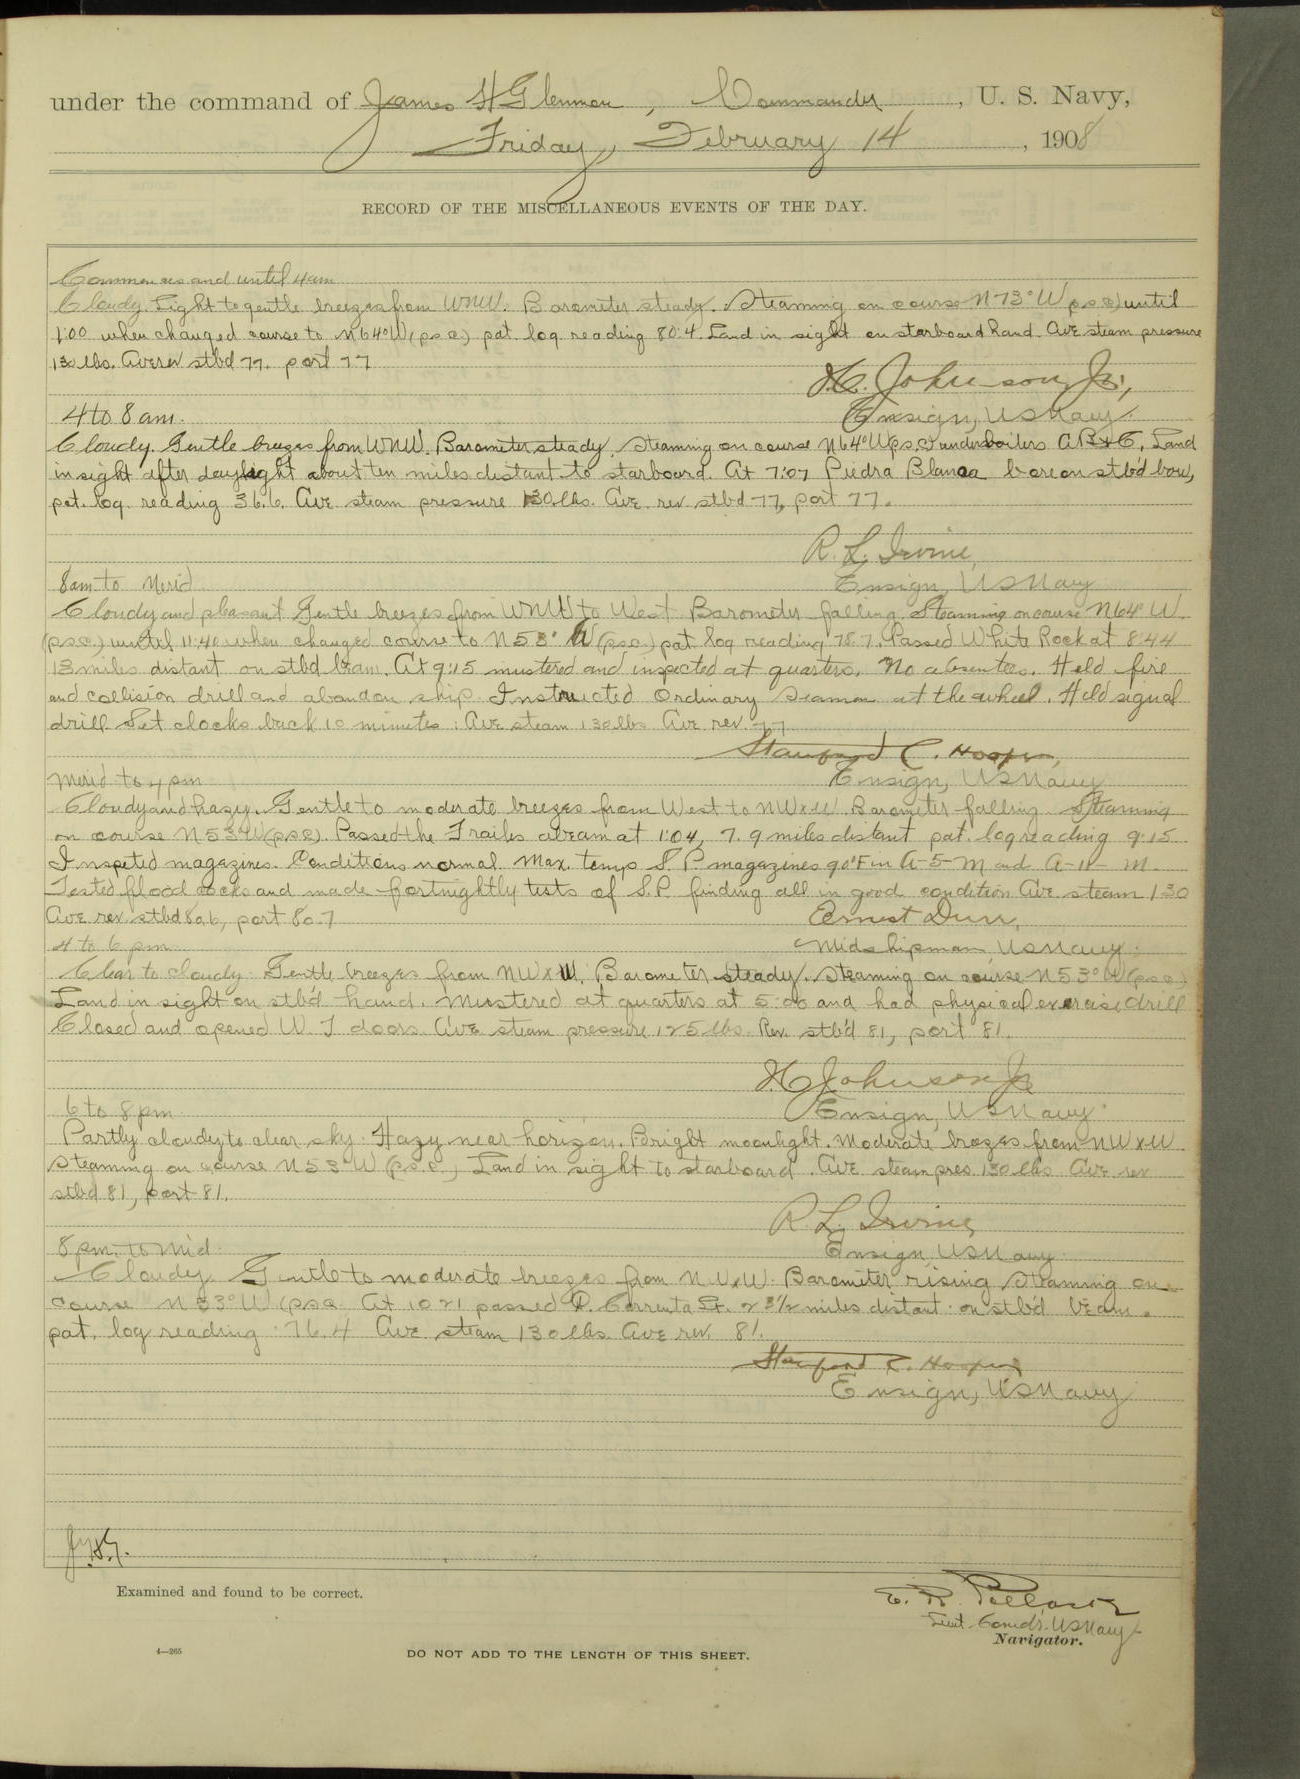 under the command of James H Glennon, Commander, U. S. Navy,
Friday, February 14, 1908
RECORD OF THE MISCELLANEOUS EVENTS OF THE DAY.
Commences and until 4 am
Cloudy. Light to gentle breezes from WNW. Barometer steady. Steaming on course N 73° W p.s.c.) until
1:00 when changed course to N 64° W (p.s.c.) pat. log reading 80.4. Land in sight on starboard hand. Ave steam pressure
130 lbs. Ave rev stbd 77. port 77
H.C. Johnson Jr.,
4 to 8 am.
Ensign, US Navy.
Cloudy. Gentle breezes from WNW. Barometer steady. Steaming on course N 64° W p.s.c) under boilers A B & C. Land
in sight after daylight about ten miles distant to starboard. At 7:07 Piedra Blanca bore on stb'd bow,
pat. log reading 36.6. Ave steam pressure 130 lbs. Ave. rev stbd 77, port 77.
R. L. Irvine,
8 am to Merid
Ensign, US Navy
Cloudy and pleasant Gentle breezes from WNW to West Barometer falling. Steaming on course N 64° W.
(p.s.c.) until 11:40 when changed course to N 53° W (p.s.c.) pat log reading 78.7. Passed White Rock at 8:44
13 miles distant on stbd beam. At 9:15 mustered and inspected at quarters. No absentees. Held fire
and collision drill and abandon ship. Instructed Ordinary Seamen at the wheel. Held signal
drill. Set clocks back 10 minutes. Ave steam 130 lbs Ave rev. 77
Stanford C. Hooper,
Merid to 4 pm
Ensign, US Navy
Cloudy and hazy. Gentle to moderate breezes from West to NWxW. Barometer falling. Steaming
on course N 53° W (p.s.c). Passed the Frailes abeam at 1:04, 7.9 miles distant pat. log reading 9.15
Inspected magazines. Conditions normal. Max. temp S.P. magazines 90°F in A-5-M and A-11-M.
Tested flood cocks and made fortnightly tests of S.P. finding all in good condition Ave steam 130
Ave rev. stbd 80.6, port 80.7
Ernest Durr,
4 to 6 pm
Midshipman, US Navy.
Clear to cloudy. Gentle breezes from NWxW. Barometer steady. Steaming on course N 53° W (p.s.c.)
Land in sight on stb'd hand. Mustered at quarters at 5:00 and had physical exercise drill
Closed and opened W.T doors. Ave steam pressure 125 lbs. Rev. stb'd 81, port 81.
H C Johnson Jr
6 to 8 pm
Ensign, US Navy.
Partly cloudy to clear sky. Hazy near horizon. Bright moonlight. Moderate breezes from NWxW
Steaming on course N 53° W (p.s.c.) Land in sight to starboard. Ave steam pres 130 lbs Ave rev
stbd 81, port 81.
R. L. Irvine,
8 pm. to Mid
Ensign, US Navy
Cloudy. Gentle to moderate breezes from NWxW. Barometer rising Steaming on
course N 53° W (p.s.c. At 10 21 passed P. Corrienta Lt. 23 1/2 miles distant on stb'd beam.
pat. log reading 76.4 Ave steam 130 lbs. Ave rev. 81.
Stanford C. Hooper
Ensign, US Navy
J.H.G.
Examined and found to be correct.
Lieut. Comdr. US Navy
Navigator.
4—265
DO NOT ADD TO THE LENGTH OF THIS SHEET.